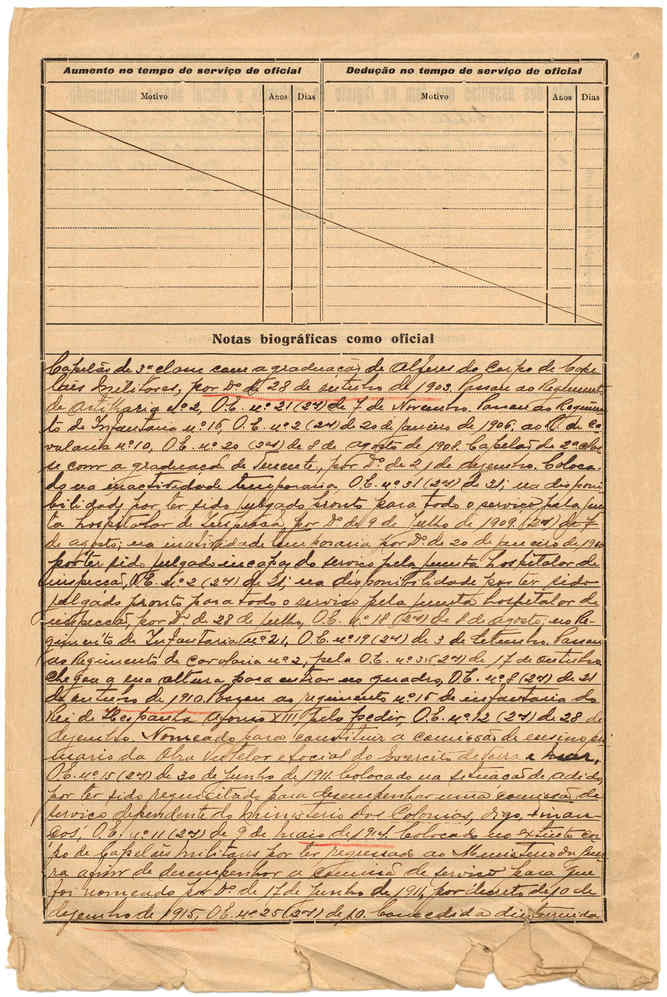 Aumento no tempo de serviço de oficial
Dedução no tempo de serviço de oficial
Motivo
Anos
Dias
Motivo
Anos
Dias
Notas biográficas como oficial
Capelão de 3ª classe com a graduação de Alferes do Corpo de Cape
lães Militares, por D. de 28 de outubro de 1903. Passou ao Regimento
de Artilharia nº 2, O.E. nº 21 (2ª) de 7 de Novembro. Passou ao Regimen
to de Infantaria nº 16, O.E. nº 2 (2ª) de 20 de janeiro de 1906, ao R. de Ca
valaria nº 10, O.E. nº 20 (2ª) de 8 de agosto de 1908. Capelão de 2ª clas
se com a graduação de Tenente, por D. de 21 de dezembro. Coloca
do na inactividade temporaria O.E. nº 31 (2ª) de 31; na disponi
bilidade por ter sido julgado pronto para todo o serviço pela jun
ta hospitalar de inspeção, por D. de 9 de julho de 1909. (2ª) de 7
de agosto; na inatividade temporaria por D. de 20 de janeiro de 1910
por ter sido julgado incapaz do serviço pela junta hospitalar de
inspecção, O.E. nº 2 (2ª) de 21; na disponibilidade por ter sido
julgado pronto para todo o serviço pela junta hospitalar de
inspecção, por D. de 28 de julho, O.E. nº 18 (2ª) de 8 de agosto; no Re
gimento de Infantaria nº 21, O.E. nº 19 (2ª) de 3 de Setembro. Passou
ao Regimento de cavalaria nº 2, pela O.E. (2ª) de 17 de outubro
chegou a sua altura para entrar no quadro, O.E. nº 8 (2ª) de 21
de outubro de 1910. Passou ao regimento nº 15 de infantaria do
Rei de Hespanha Afonso XIII pelo pedir, O.E. nº 12 (2ª) de 28 de
dezembro. Nomeado para constituir a comissão de ensino
da Obra Tutelar e Social do Exercito de terra e mar,
O.E. nº 15 (2ª) de 30 de Junho de 1911. Colocado na situação de adido
por ter sido requisitado para desempenhar uma comissão de
serviço dependente do Ministerio das Colonias,
O.E. nº 11 (2ª) de 9 de maio de 1914. Colocado no extinto cor
po de Capelães militares por ter regressado ao Ministerio da Guer
ra afim de desempenhar a comissão de serviço para que
foi nomeado por D. de 17 de Junho de 1911, por decreto de 10 de
dezembro de 1915, O.E. nº 25 (2ª) de 10. Concedida